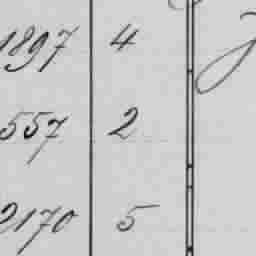 1897 4
557 2
2170 5